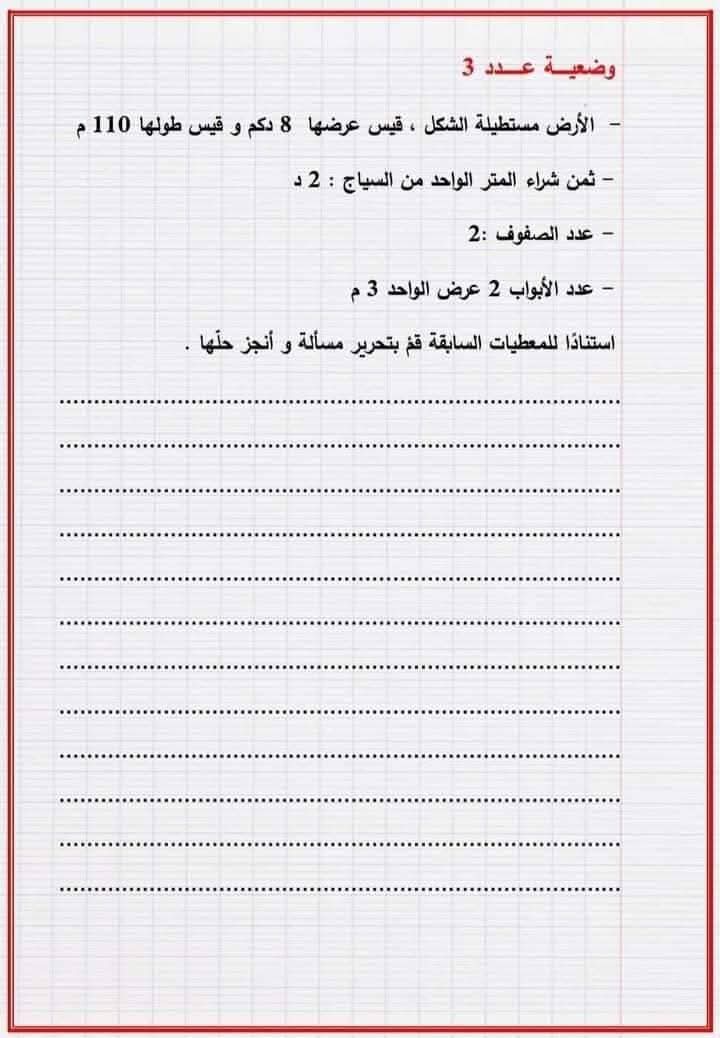 وضعيـــة عـــدد 3
- الأرض مستطيلة الشكل ، قيس عرضها 8 دكم و قيس طولها 110 م
- ثمن شراء المتر الواحد من السياج : 2 د
- عدد الصفوف :2
- عدد الأبواب 2 عرض الواحد 3 م
استنادًا للمعطيات السابقة قمْ بتحرير مسألة و أنجز حلّها .